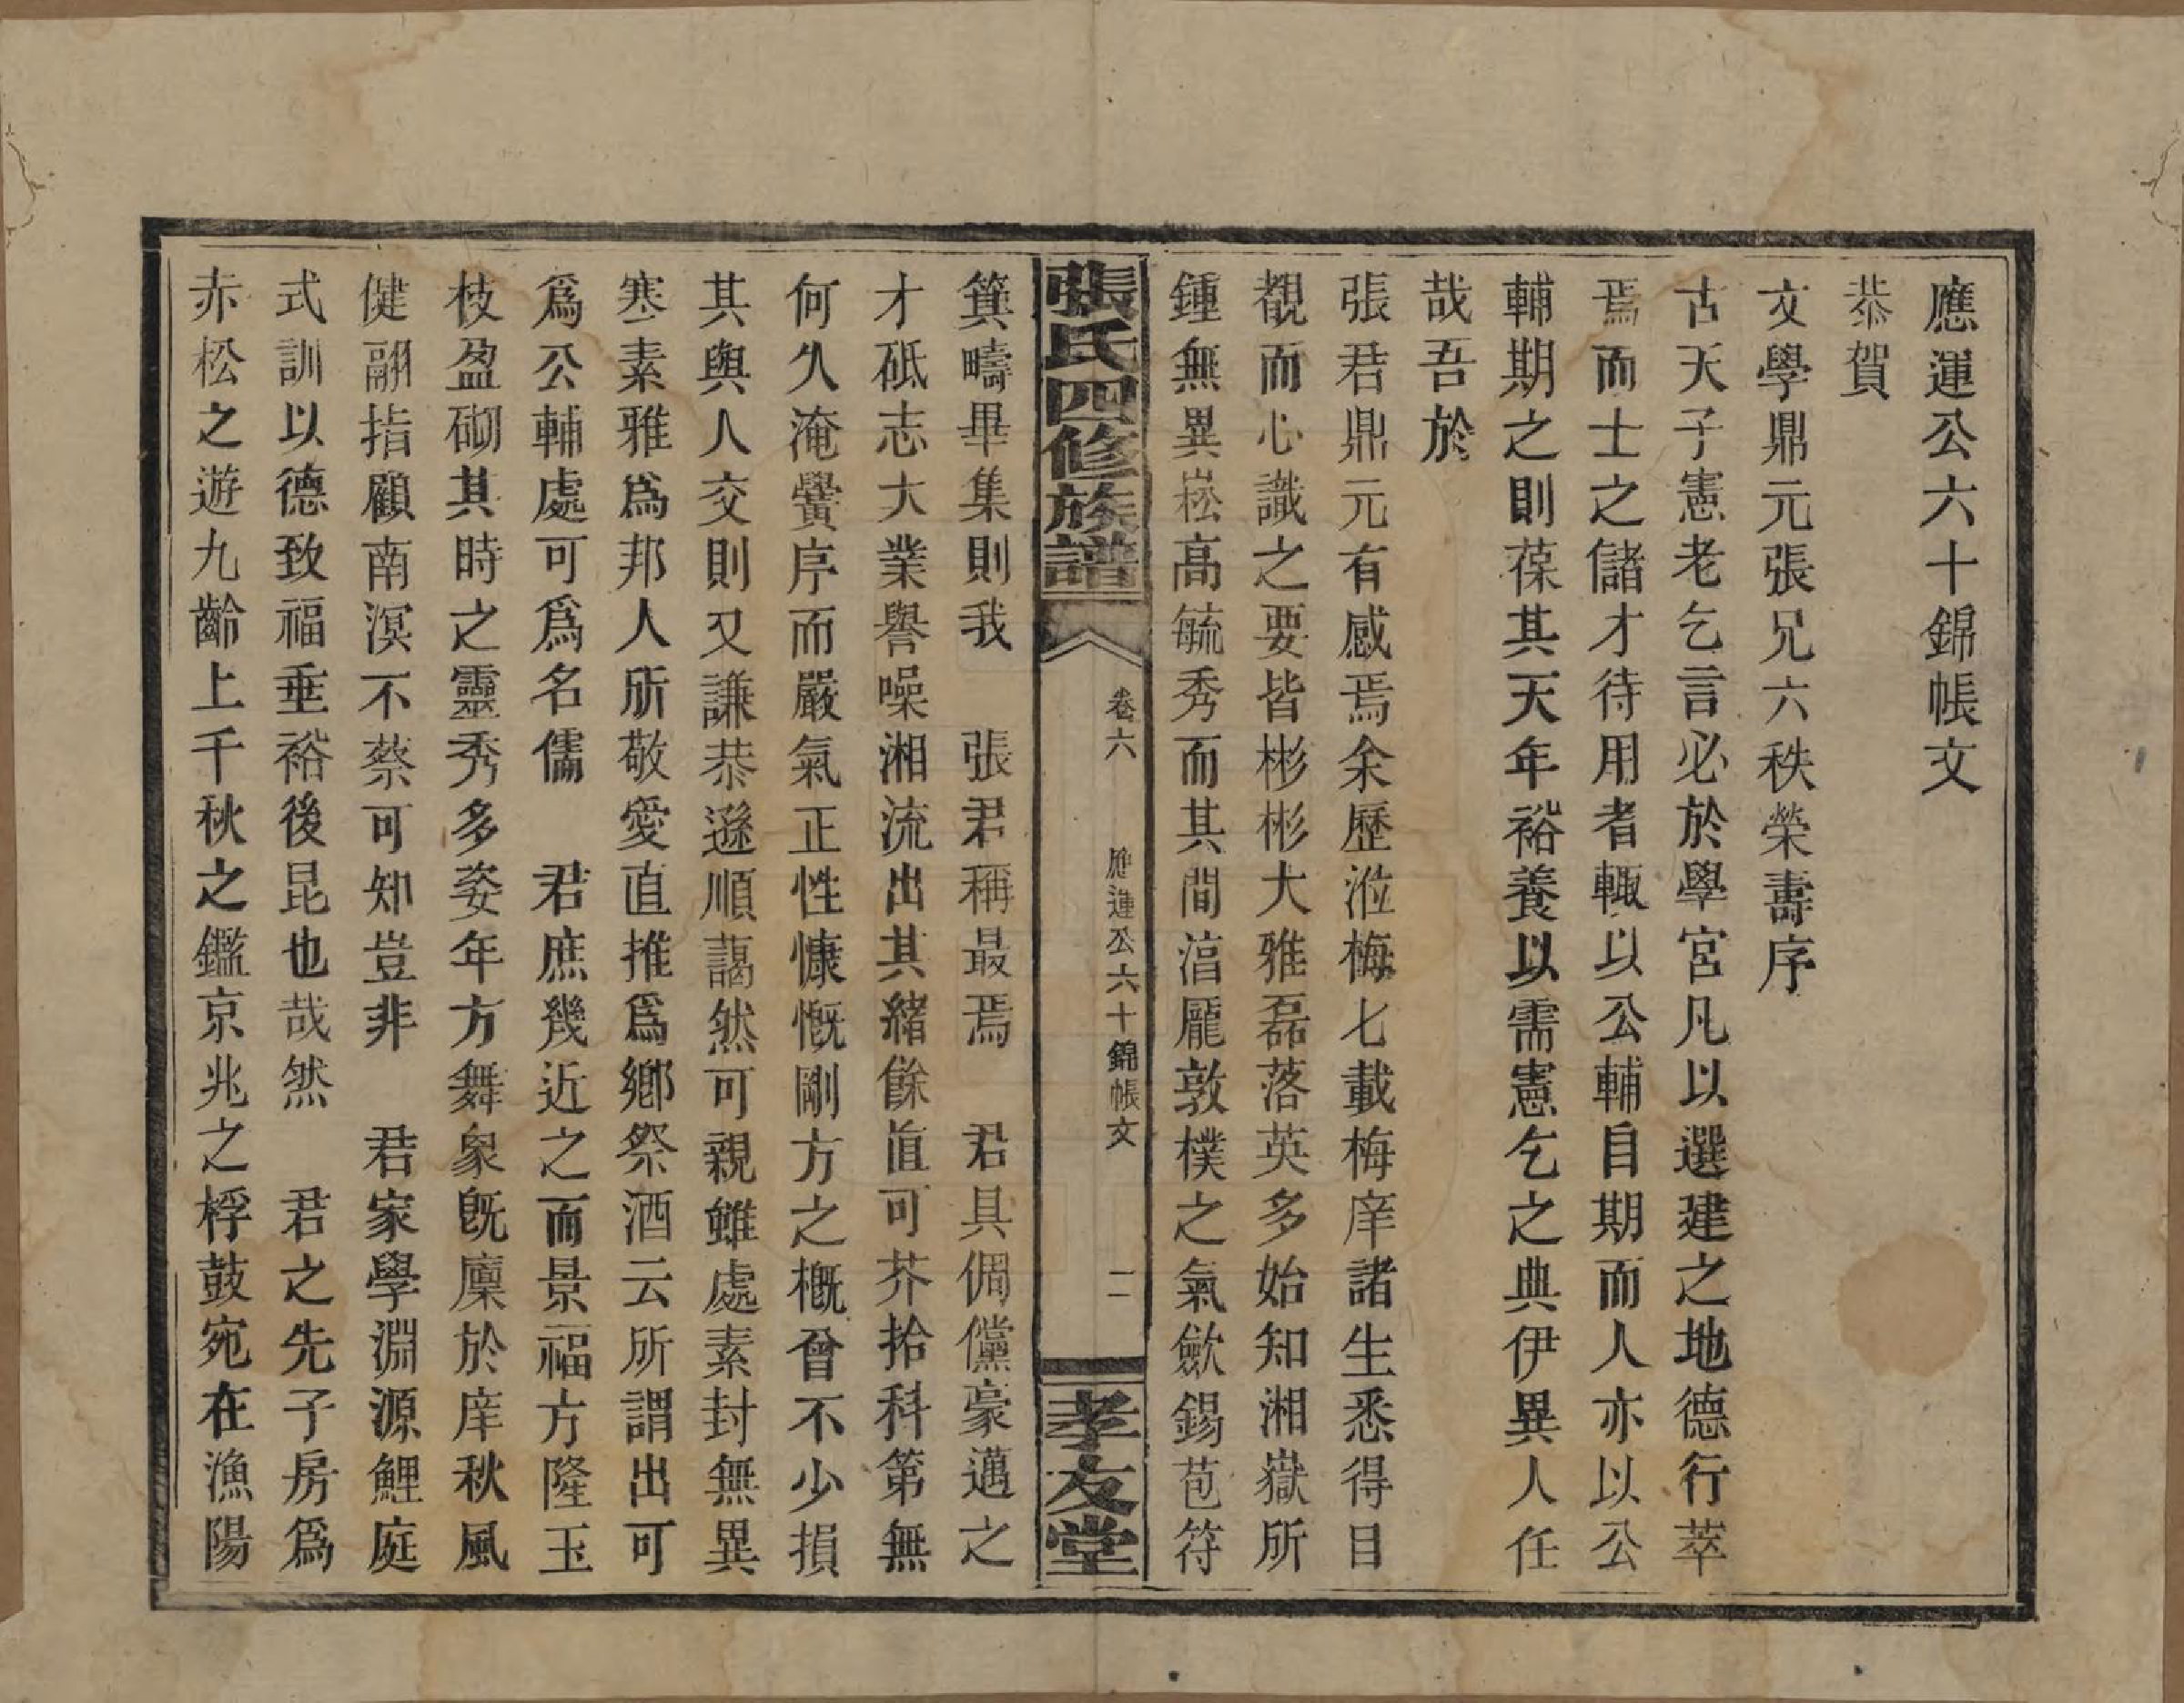 應運公六十錦帳文
恭賀
文學鼎元張兄六秩榮壽序
古天子憲老乞言必於學宮凡以選建之地德行萃
焉而士之儲才待用者輒以公輔自期而人亦以公
輔期之則葆其天年裕養以需憲乞之典伊異人任
哉吾於
張君鼎元有感焉余歷涖梅七載梅庠諸生悉得目
覩而心識之要皆彬彬大雅磊落英多始知湘嶽所
鍾無異崧高毓秀而其間湻龎敦樸之氣歛錫苞符
張氏四修族譜
卷六
應運公六十錦帳文
二
孝友堂
箕疇畢集則我 張君稱最焉 君具倜儻豪邁之
才砥志大業譽噪湘流出其緒餘直可芥拾科第無
何久淹黌序而嚴氣正性慷慨剛方之槪曾不少損
其與人交則又謙恭遜順藹然可親雖處素封無異
寒素雅爲邦人所敬愛直推爲鄉祭酒云所謂出可
爲公輔處可爲名儒 君庶幾近之而景福方隆玉
枝盈砌其時之靈秀多姿年方舞象旣廩於庠秋風
健翮指顧南溟不蔡可知豈非 君家學淵源鯉庭
式訓以德致福垂裕後昆也哉然 君之先子房爲
赤松之遊九齡上千秋之鑑京兆之桴鼓宛在漁陽